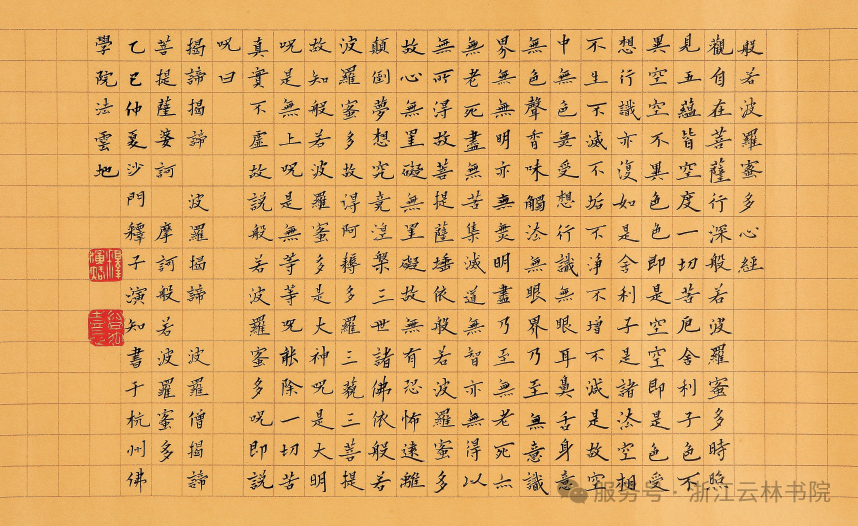 般若波羅蜜多心經
觀自在菩薩行深般若波羅蜜多時照
見五蘊皆空度一切苦厄舍利子色不
異空空不異色色即是空空即是色受
想行識亦復如是舍利子是諸法空相
不生不滅不垢不淨不增不減是故空
中無色無受想行識無眼耳鼻舌身意
無色聲香味觸法無眼界乃至無意識
界無無明亦無無明盡乃至無老死亦
無老死盡無苦集滅道無智亦無得以
無所得故菩提薩埵依般若波羅蜜多
故心無罣礙無罣礙故無有恐怖遠離
顛倒夢想究竟涅槃三世諸佛依般若
波羅蜜多故得阿耨多羅三藐三菩提
故知般若波羅蜜多是大神呪是大明
呪是無上呪是無等等呪能除一切苦
真實不虛故説般若波羅蜜多呪即説
呪曰
揭諦揭諦 波羅揭諦 波羅僧揭諦
菩提薩婆訶 摩訶般若波羅蜜多
乙巳仲夏沙門釋子演知書于杭州佛
學院法雲地
服务号·浙江云林书院